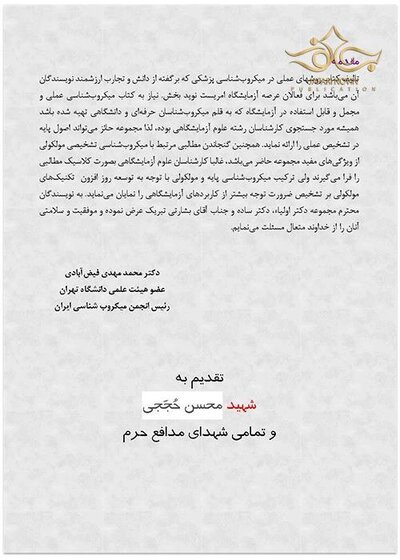 مقدمه
PUBLICATION
تالیف کتاب روشهای عملی در میکروب‌شناسی پزشکی که برگفته از دانش و تجارب ارزشمند نویسندگان
آن می‌باشد برای فعالان عرصه آزمایشگاه امریست نوید بخش. نیاز به کتاب میکروب‌شناسی عملی و
مجمل و قابل استفاده در آزمایشگاه که به قلم میکروب‌شناسان حرفه‌ای و دانشگاهی تهیه شده باشد
همیشه مورد جستجوی کارشناسان رشته علوم آزمایشگاهی بوده، لذا مجموعه حائز می‌تواند اصول پایه
در تشخیص عملی را ارائه نماید. همچنین گنجاندن مطالبی مرتبط با میکروب‌شناسی تشخیصی مولکولی
از ویژگی‌های مفید مجموعه حاضر می‌باشد، غالبا کارشناسان علوم آزمایشگاهی بصورت کلاسیک مطالبی
را فرا می‌گیرند ولی ترکیب میکروبشناسی پایه و مولکولی با توجه به توسعه روز افزون تکنیک‌های
مولکولی بر تشخیص ضرورت توجه بیشتر از کاربردهای آزمایشگاهی را نمایان می‌نماید. به نویسندگان
محترم مجموعه دکتر اولیاء، دکتر ساده و جناب آقای بشارتی تبریک عرض نموده و موفقیت و سلامتی
آنان را از خداوند متعال مسئلت می‌نمایم.
دکتر محمد مهدی فیض‌آبادی
عضو هیئت علمی دانشگاه تهران
رئیس انجمن میکروب شناسی ایران
تقدیم به
شهید محسن حُجَجی
و تمامی شهدای مدافع حرم